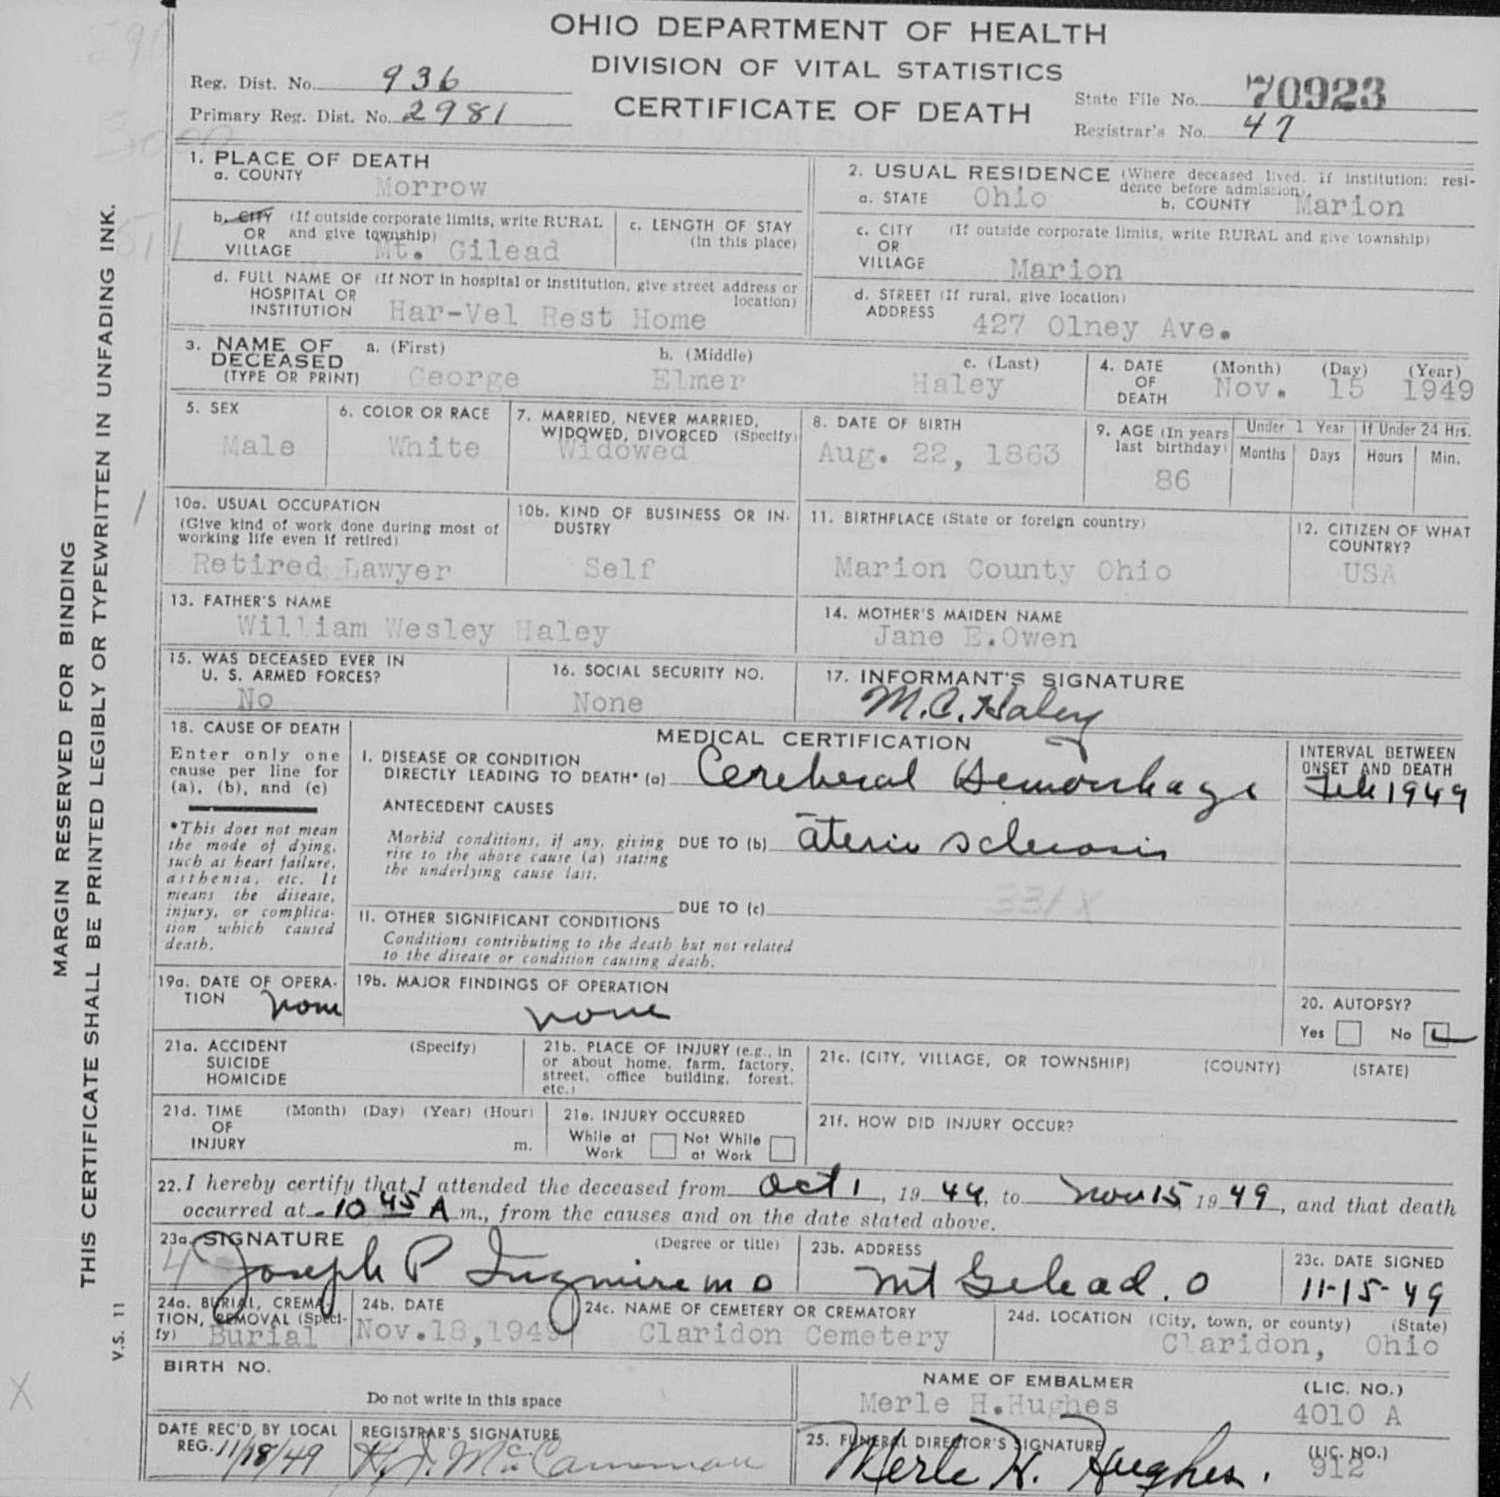 OHIO DEPARTMENT OF HEALTH
DIVISION OF VITAL STATISTICS
CERTIFICATE OF DEATH
Reg. Dist. No. 936
Primary Reg. Dist. No. 2981
State File No. 70923
Registrar's No. 47
MARGIN RESERVED FOR BINDING
THIS CERTIFICATE SHALL BE PRINTED LEGIBLY OR TYPEWRITTEN IN UNFADING INK.
V.S. 11
1. PLACE OF DEATH
a. COUNTY Morrow
b. CITY (If outside corporate limits, write RURAL
OR and give township)
VILLAGE Mt. Gilead
c. LENGTH OF STAY
(in this place)
d. FULL NAME OF (If NOT in hospital or institution, give street address or
HOSPITAL OR location)
INSTITUTION Har-Vel Rest Home
2. USUAL RESIDENCE (Where deceased lived. If institution: resi-
dence before admission).
a. STATE Ohio b. COUNTY Marion
c. CITY (If outside corporate limits, write RURAL and give township)
OR
VILLAGE Marion
d. STREET (If rural, give location)
ADDRESS 427 Olney Ave.
3. NAME OF DECEASED
(TYPE OR PRINT)
a. (First) George
b. (Middle) Elmer
c. (Last) Haley
4. DATE OF DEATH
(Month) (Day) (Year)
Nov. 15 1949
5. SEX
Male
6. COLOR OR RACE
White
7. MARRIED, NEVER MARRIED,
WIDOWED, DIVORCED (Specify)
Widowed
8. DATE OF BIRTH
Aug. 22, 1863
9. AGE (In years
last birthday)
86
Under 1 Year
Months Days
If Under 24 Hrs.
Hours Min.
10a. USUAL OCCUPATION
(Give kind of work done during most of
working life even if retired)
Retired Lawyer
10b. KIND OF BUSINESS OR IN-
DUSTRY
Self
11. BIRTHPLACE (State or foreign country)
Marion County Ohio
12. CITIZEN OF WHAT
COUNTRY?
USA
13. FATHER'S NAME
William Wesley Haley
14. MOTHER'S MAIDEN NAME
Jane E.Owen
15. WAS DECEASED EVER IN
U. S. ARMED FORCES?
No
16. SOCIAL SECURITY NO.
None
17. INFORMANT'S SIGNATURE
M.C. Haley
18. CAUSE OF DEATH
Enter only one
cause per line for
(a), (b), and (c)
*This does not mean
the mode of dying,
such as heart failure,
asthenia, etc. It
means the disease,
injury, or complica-
tion which caused
death.
MEDICAL CERTIFICATION
I. DISEASE OR CONDITION
DIRECTLY LEADING TO DEATH* (a) Cerebral Hemorrhage
ANTECEDENT CAUSES
Morbid conditions, if any, giving
rise to the above cause (a) stating
the underlying cause last.
DUE TO (b) aterio sclerosis
DUE TO (c)
331X
II. OTHER SIGNIFICANT CONDITIONS
Conditions contributing to the death but not related
to the disease or condition causing death.
INTERVAL BETWEEN
ONSET AND DEATH
Feb 1949
19a. DATE OF OPERA-
TION none
19b. MAJOR FINDINGS OF OPERATION
none
20. AUTOPSY?
Yes No
21a. ACCIDENT (Specify)
SUICIDE
HOMICIDE
21b. PLACE OF INJURY (e.g., in
or about home, farm, factory,
street, office building, forest,
etc.)
21c. (CITY, VILLAGE, OR TOWNSHIP) (COUNTY) (STATE)
21d. TIME (Month) (Day) (Year) (Hour)
OF
INJURY m.
21e. INJURY OCCURRED
While at Work Not While at Work
21f. HOW DID INJURY OCCUR?
22. I hereby certify that I attended the deceased from Oct 1, 1944, to Nov 15 1949, and that death
occurred at 10 45 A m., from the causes and on the date stated above.
23a. SIGNATURE (Degree or title)
Joseph P Ingmire MD
23b. ADDRESS
Mt Gilead. O
23c. DATE SIGNED
11-15-49
24a. BURIAL, CREMA-
TION, REMOVAL (Speci-
fy) Burial
24b. DATE
Nov.18,1949
24c. NAME OF CEMETERY OR CREMATORY
Claridon Cemetery
24d. LOCATION (City, town, or county) (State)
Claridon, Ohio
BIRTH NO.
Do not write in this space
NAME OF EMBALMER
Merle H.Hughes
(LIC. NO.)
4010 A
DATE REC'D BY LOCAL
REG. 11/18/49
REGISTRAR'S SIGNATURE
25. FUNERAL DIRECTOR'S SIGNATURE
Merle H. Hughes.
(LIC. NO.)
912